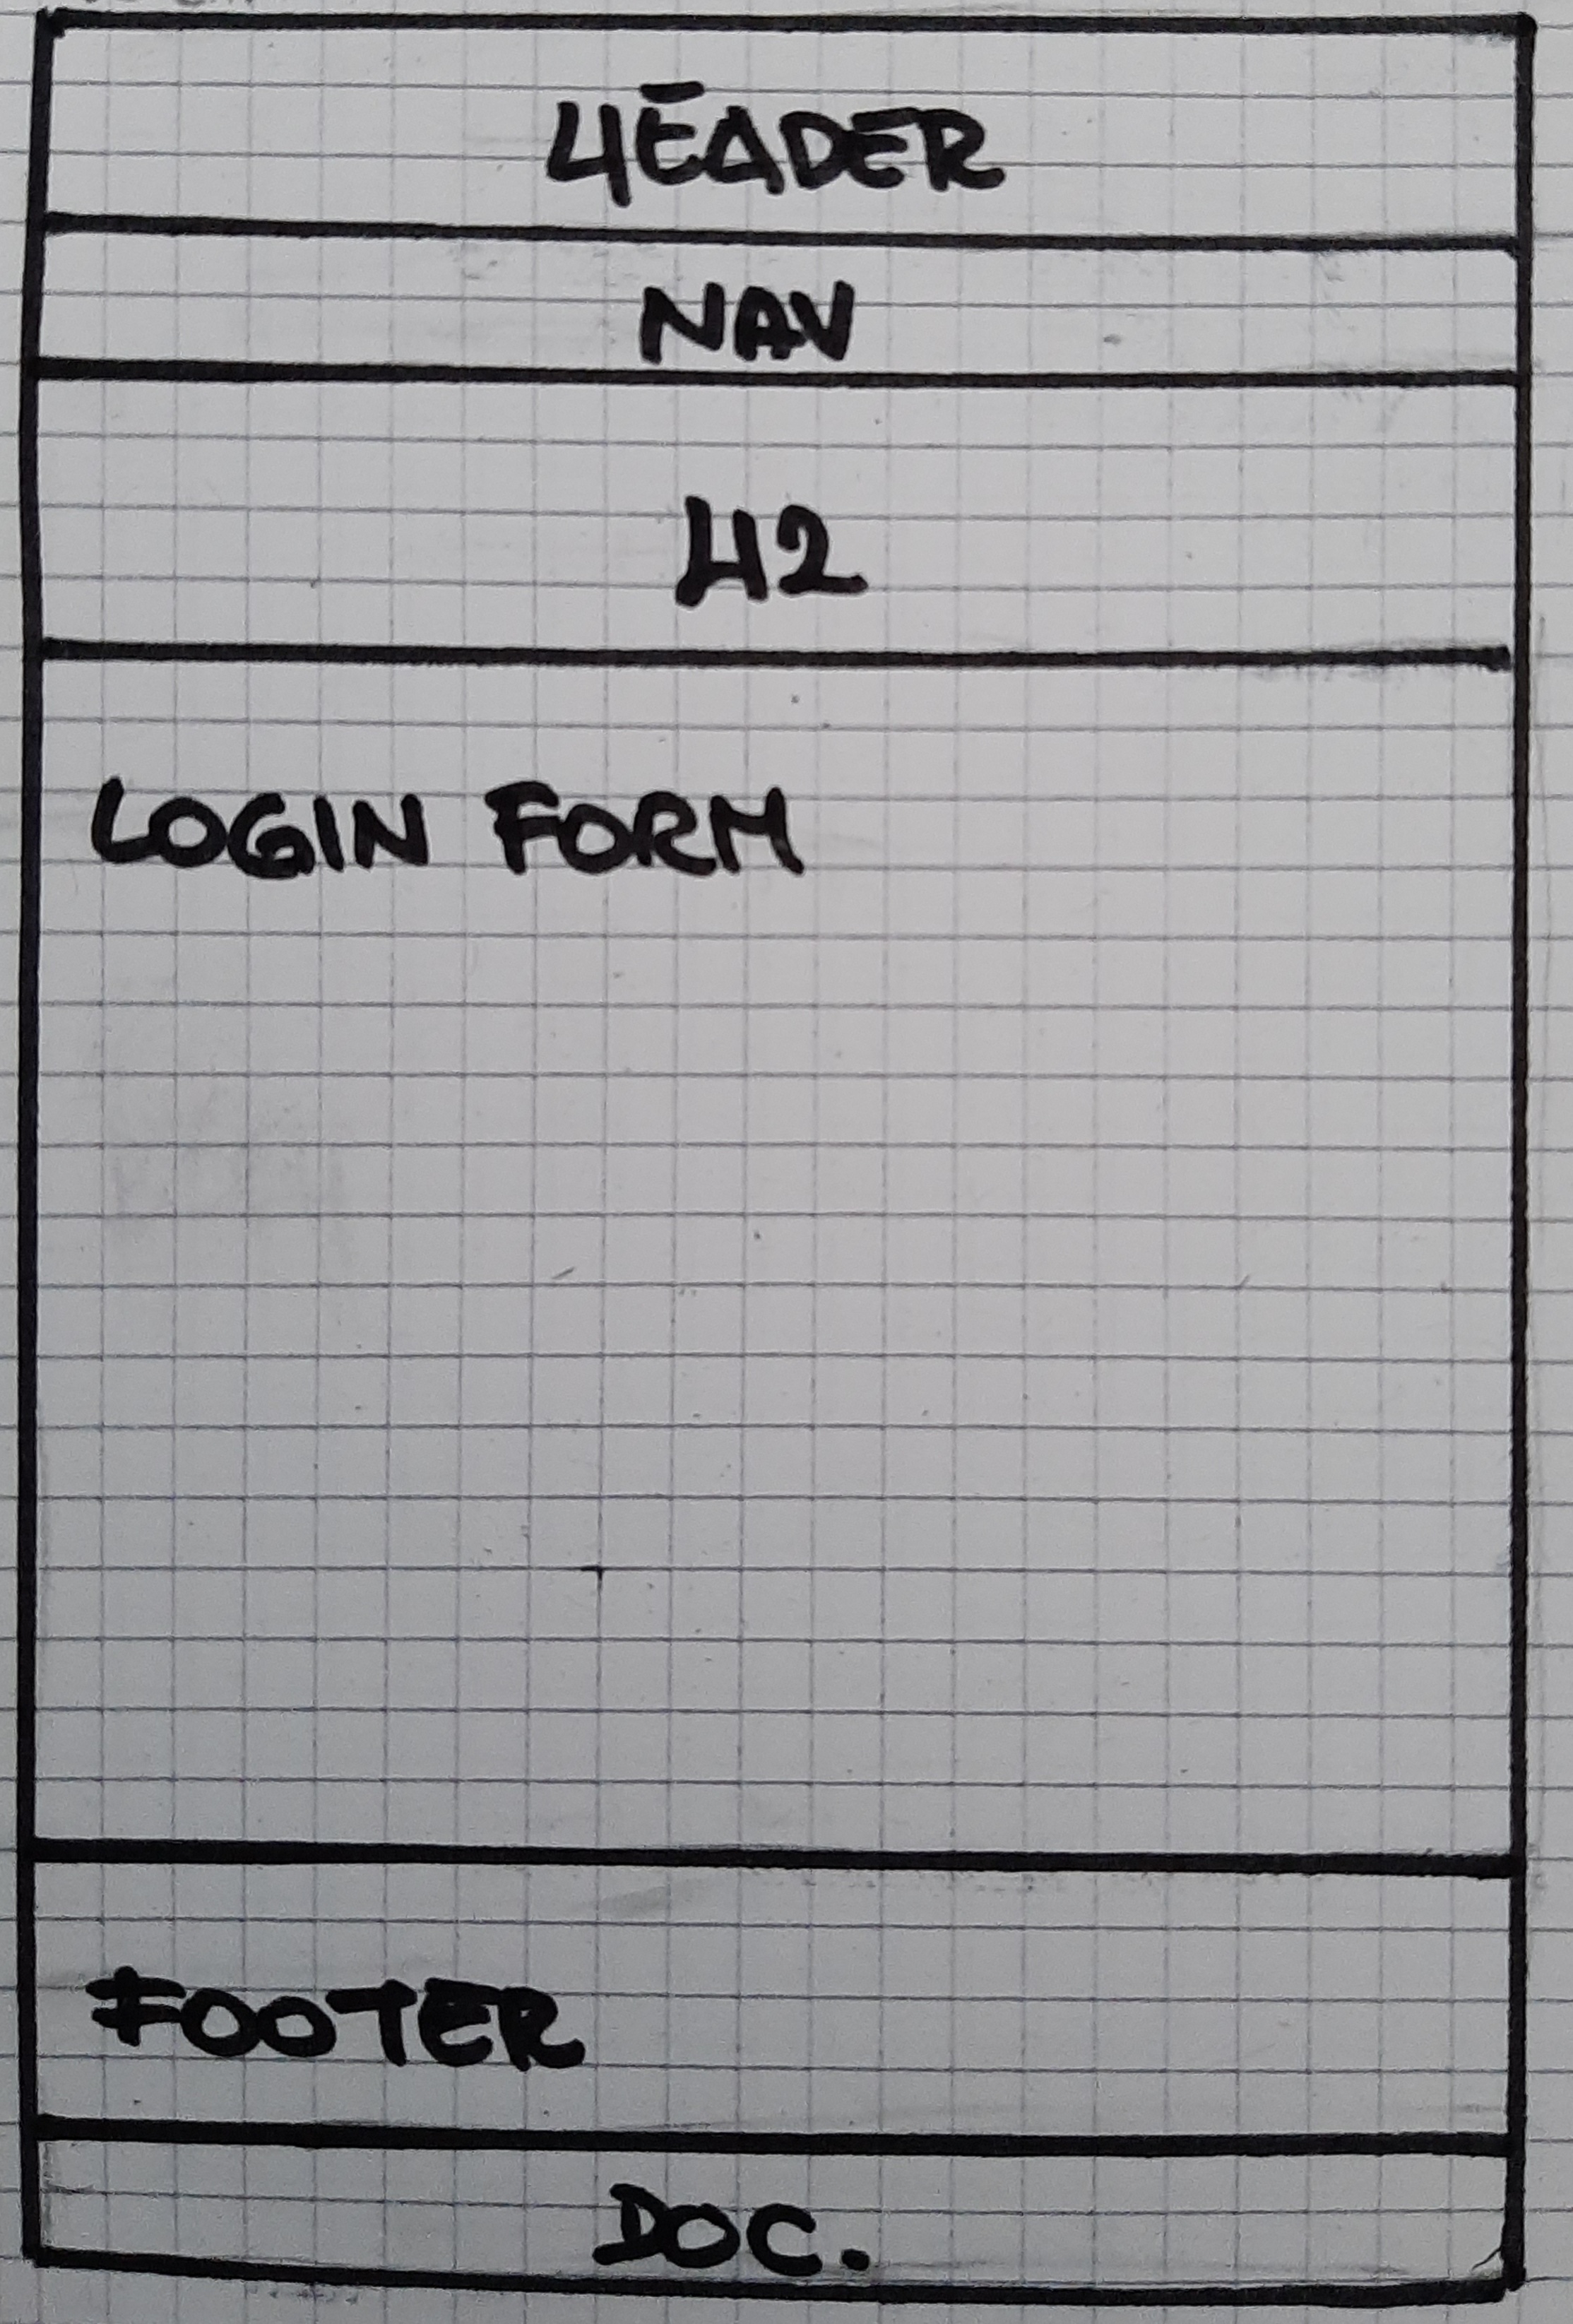 HEADER
NAV
H2
LOGIN FORM
FOOTER
DOC.